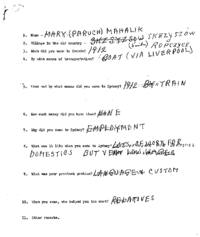 1. Name - MARY (PARUCH) MAHALIK
2. Village in the old country - SKRZYSZOW
ROPCZYCE
3. When did you come to Canada? 1912
4. By what means of transportation? - BOAT (VIA LIVERPOOL)
5. And by what means did you come to Sydney? 1912 BY TRAIN
6. How much money did you have then? NONE
7. Why did you come to Sydney? EMPLOYMENT
8. What was it like when you came to Sydney? LOTS OF WORK FOR
DOMESTICS BUT VERY LOW WAGES
9. What was your greatest problem? LANGUAGE & CUSTOM
10. When you came, who helped you the most? RELATIVES
11. Other remarks.